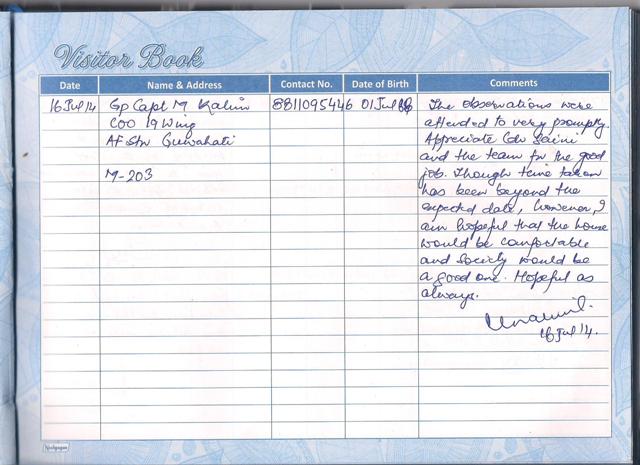 Visitor Book
Date Name & Address Contact No. Date of Birth Comments
16 Jul 14 Gp Capt M Kalim 8811095446 01 Jul The observations were
COO 19 Wing attended to very promptly.
AF Stn Guwahati Appreciate Cdr Saini
and the team for the good
M-203 job. Though time taken
has been beyond the
expected date, however, I
am hopeful that the house
would be comfortable
and society would be
a good one. Hopeful as
always.
16 Jul 14.